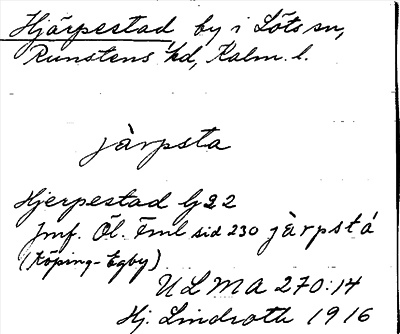 Hjärpestad by i Löts sn,
Runstens hd, Kalm. l.
jàrpsta
Hjerpestad G22
Jmf. Öl. Fml sid 230 jàrpstá
(Köping-Egby)
ULMA 270:14
Hj. Lindroth 1916